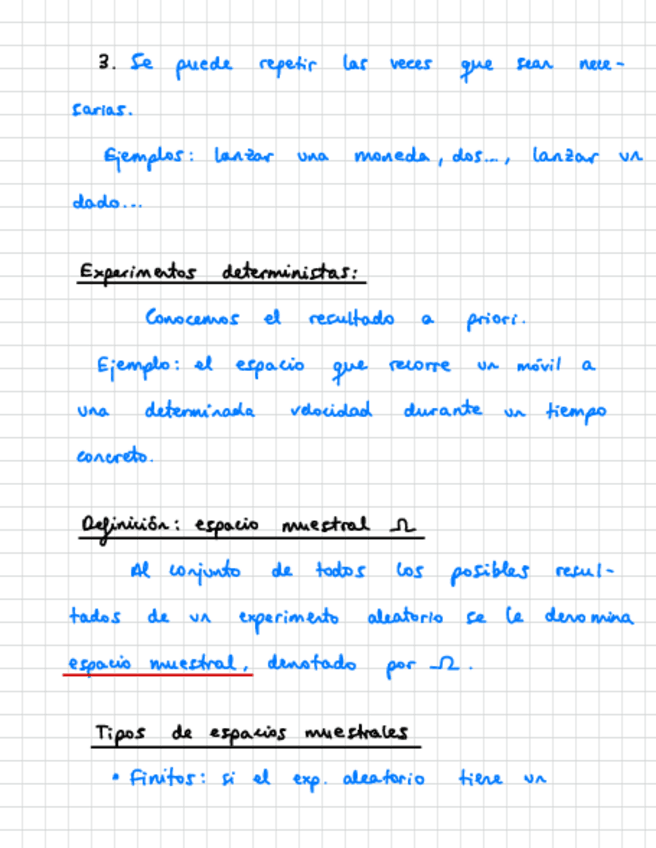 3. Se puede repetir las veces que sean nece-
sarias.
Ejemplos: lanzar una moneda, dos..., lanzar un
dado...
Experimentos deterministas:
Conocemos el resultado a priori.
Ejemplo: el espacio que recorre un móvil a
una determinada velocidad durante un tiempo
concreto.
Definición: espacio muestral Ω
Al conjunto de todos los posibles resul-
tados de un experimento aleatorio se le denomina
espacio muestral, denotado por Ω.
Tipos de espacios muestrales
• Finitos: si el exp. aleatorio tiene un